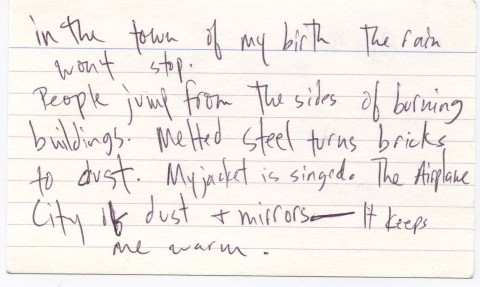 in the town of my birth the rain
wont stop.
People jump from the sides of burning
buildings. Melted steel turns bricks
to dust. My jacket is singed. The Airplane
City is dust + mirrors — It keeps
me warm.